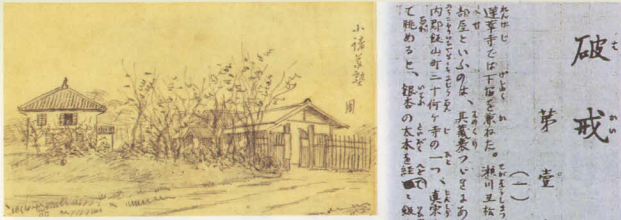 小諸義塾 図
破戒
第壹
(一)
蓮華寺では下宿を兼ねた。瀬川丑松
部屋といふのは、其蔵裏つゞきにあ
内郡飯山町二十何ヶ寺の一つ、真宗
て眺めると、銀杏の大木を経